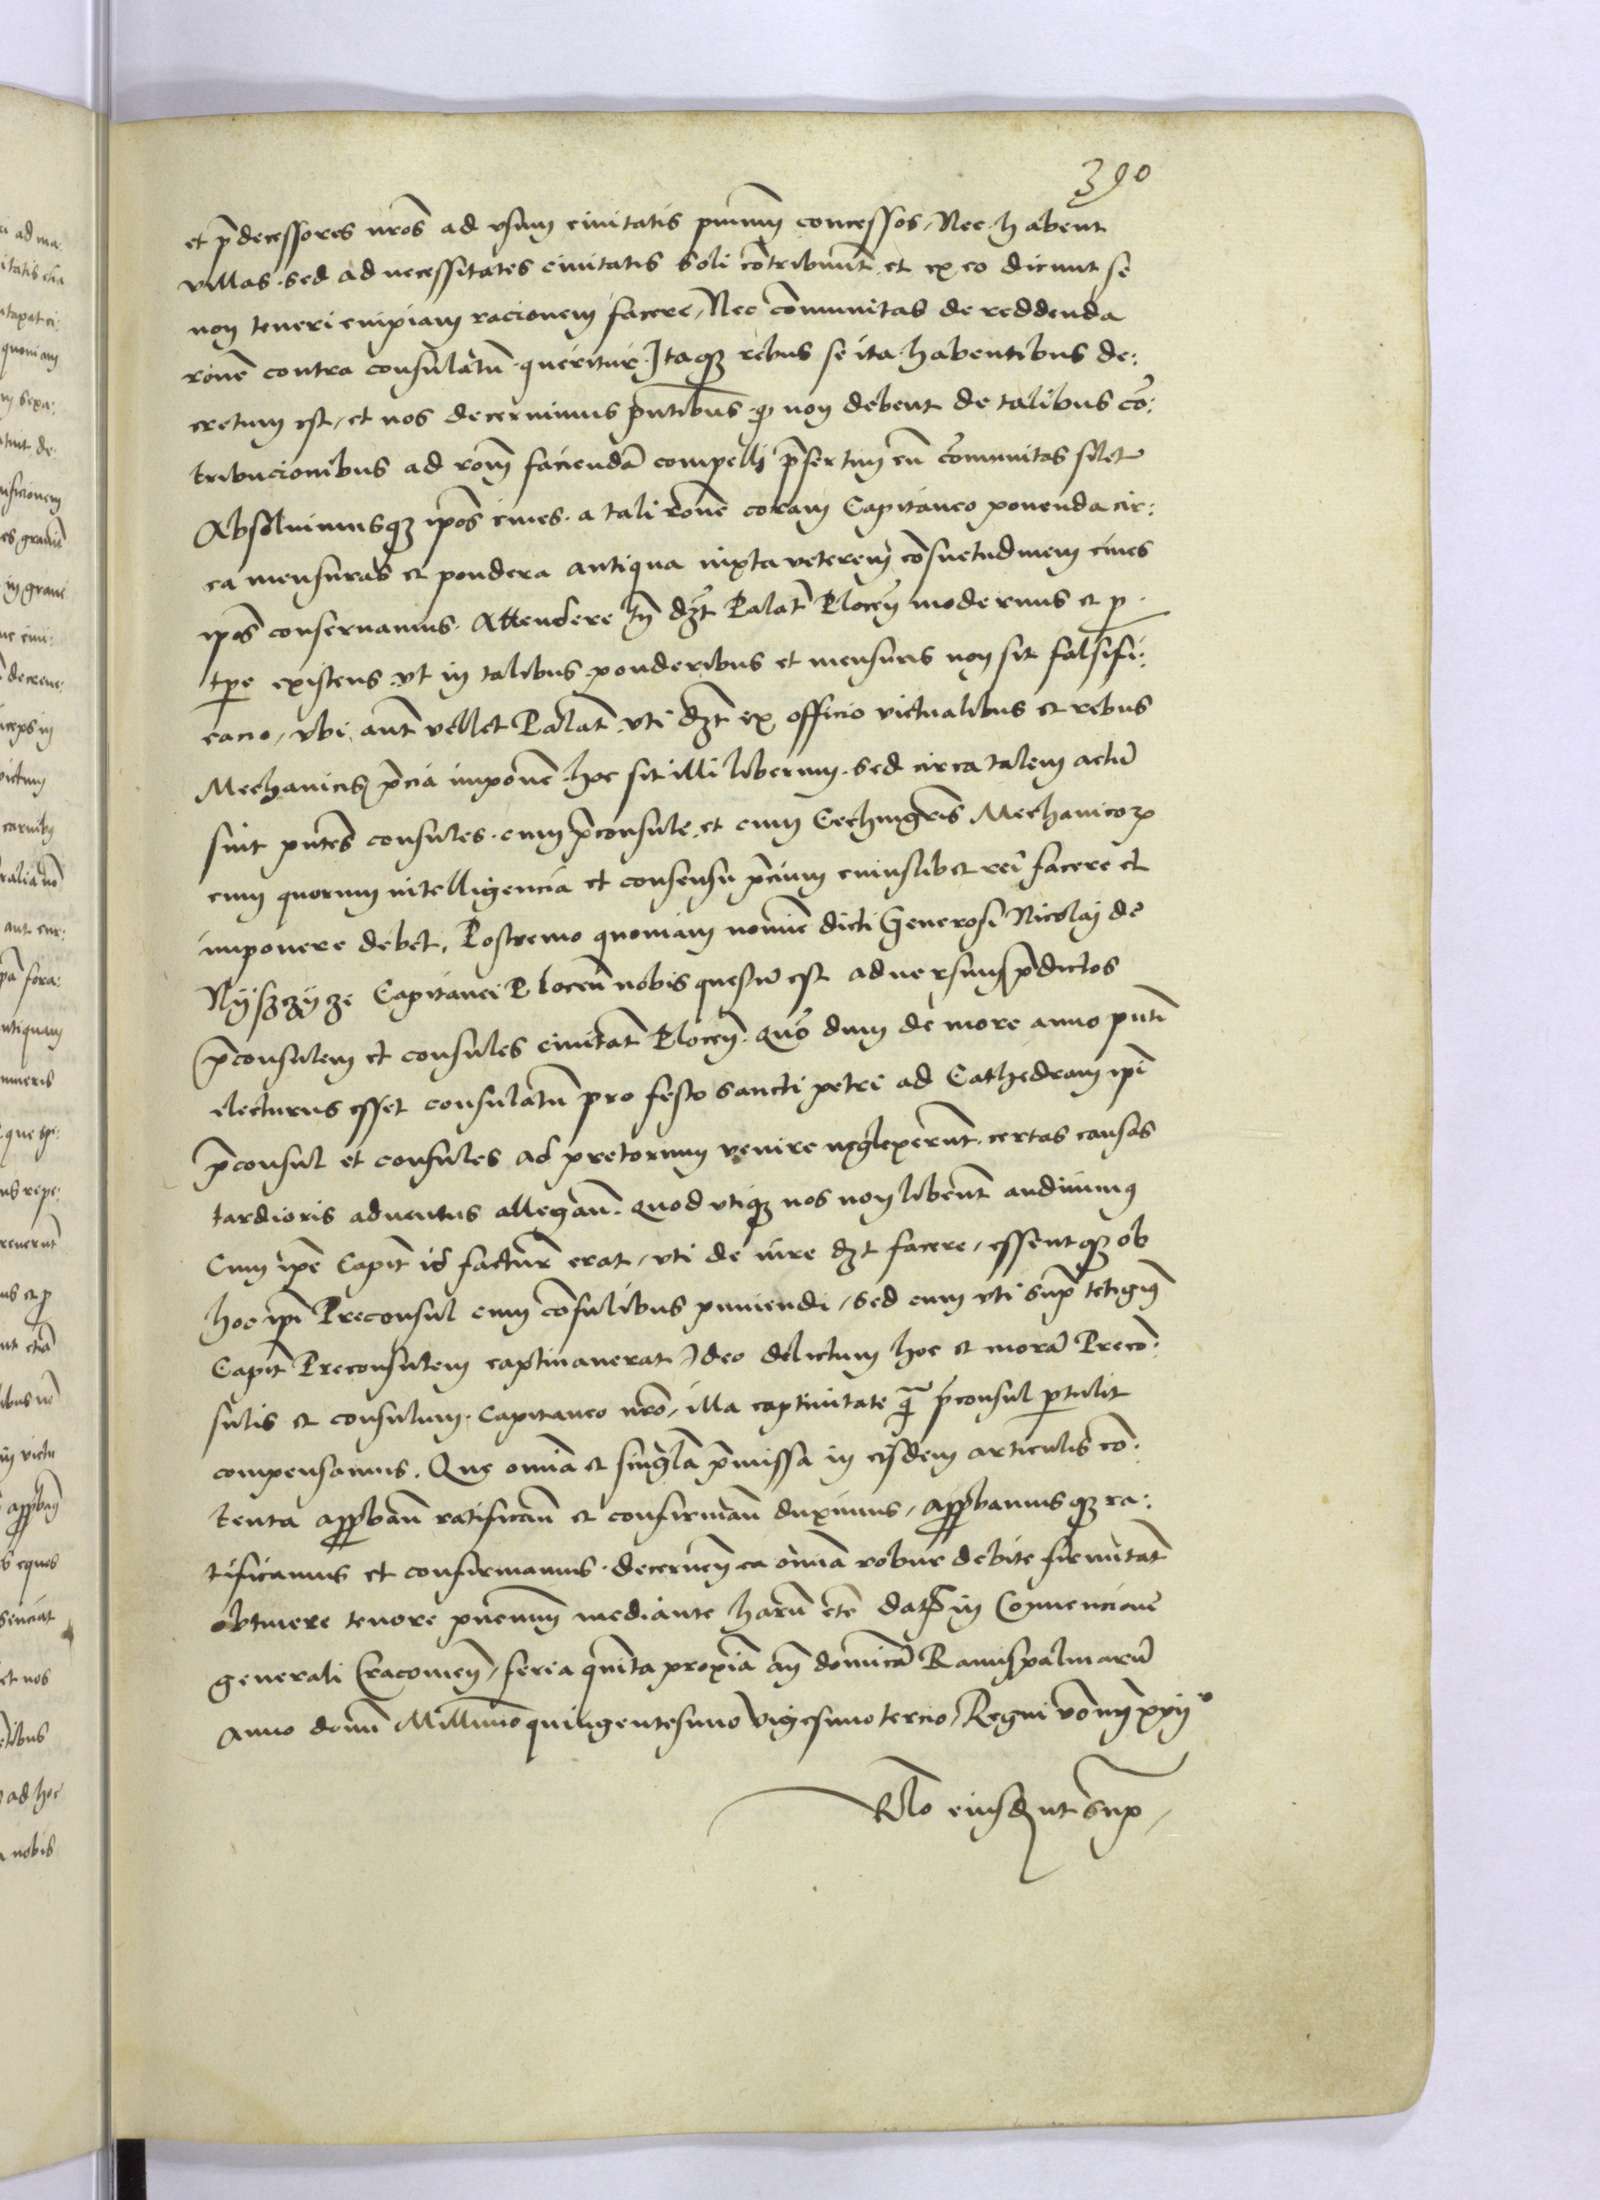 390
et p̄decessores nr̄os ad vsum ciuitatis concessos, Nec habent
villas. sed ad necessitates ciuitatis soli cōtribuūt. et ex eo dicunt se
non teneri cuipiam racionem facere, Nec cōmunitas de reddenda
rōne contra consulatū. queritur. Itaqꝫ rebus se ita habentibus de:
cretum est, et nos decernimus pn̄tibus. ꝙ non debent de talibus cō:
tribucionibus ad rōm̄ faciendā compelli p̄sertim cū cōmunitas silet
Absoluimusqꝫ ip̄os ciues. a tali rōne coram Capitaneo ponenda cir:
ca mensuras et pondera antiqua iuxta veterem cōsuetudinem ciues
ip̄os conseruamus. Attendere tn̄ dꝫt Palat̄ Plocen̄ modernus et ꝓ
tp̄e existens vt in talibus ponderibus et mensuris non sit falsifi:
cacio, vbi aut̄ vellet Palat̄ vti dꝫt ex officio victualibus et rebus
Mechanicis p̄cia imponē. hoc sit illi liberum. sed circa talem actū
sint pn̄tes consules. cum p̄consule. et cum Cechmgr̄is Mechanicoꝝ
cum quorum intelligencia et consensu p̄cium cuiuslibet rei facere et
imponere debet. Postremo quoniam nomīe dicti Generosi Nicolai de
Nyszczycze Capitanei Plocen̄ nobis questū est aduersum p̄dictos
p̄consulem et consules ciuitat̄ Plocen̄. quō dum de more anno pn̄ti
electurus esset consulatū pro festo sancti petri ad Cathedram ip̄i
p̄consul et consules ad pretorium venire neglexerūt. certas causas
tardioris aduentus allegan̄. quod vtiqꝫ nos non libent̄ audiuimꝰ
Cum ip̄e Capit̄ id factur̄ erat, vti de iure dꝫt facere, essentqꝫ ob
hoc ip̄i Preconsul cum cōsulibus puniendi, sed cum vti sup̄ tetigim̄
Capit̄ Preconsulem captiuauerat, Ideo delictum hoc et morā Precō:
sulis et consulum. Capitaneo nr̄o, illa captiuitate qᷓ p̄consul ꝑtulit
compensamus. Que om̄ia et singl̄a p̄missa in eisdem articulis cō:
tenta app̄ban̄ ratifican̄ et confirman̄ duximus, app̄bamusqꝫ ra:
tificamus et confirmamus. decernen̄ ea om̄ia robur debite firmitat̄
obtinere tenore mediante harū etc̄ dat̄ in Conuencione
generali Cracouien̄, feria quīta proxīa an̄ domīcā Ramispalmarū
Anno domī Millīmo quingentesimo Vigesimo tercio, Regni vo nr̄i xvijº
Rl̄o eiusd̄ ut sup̄,